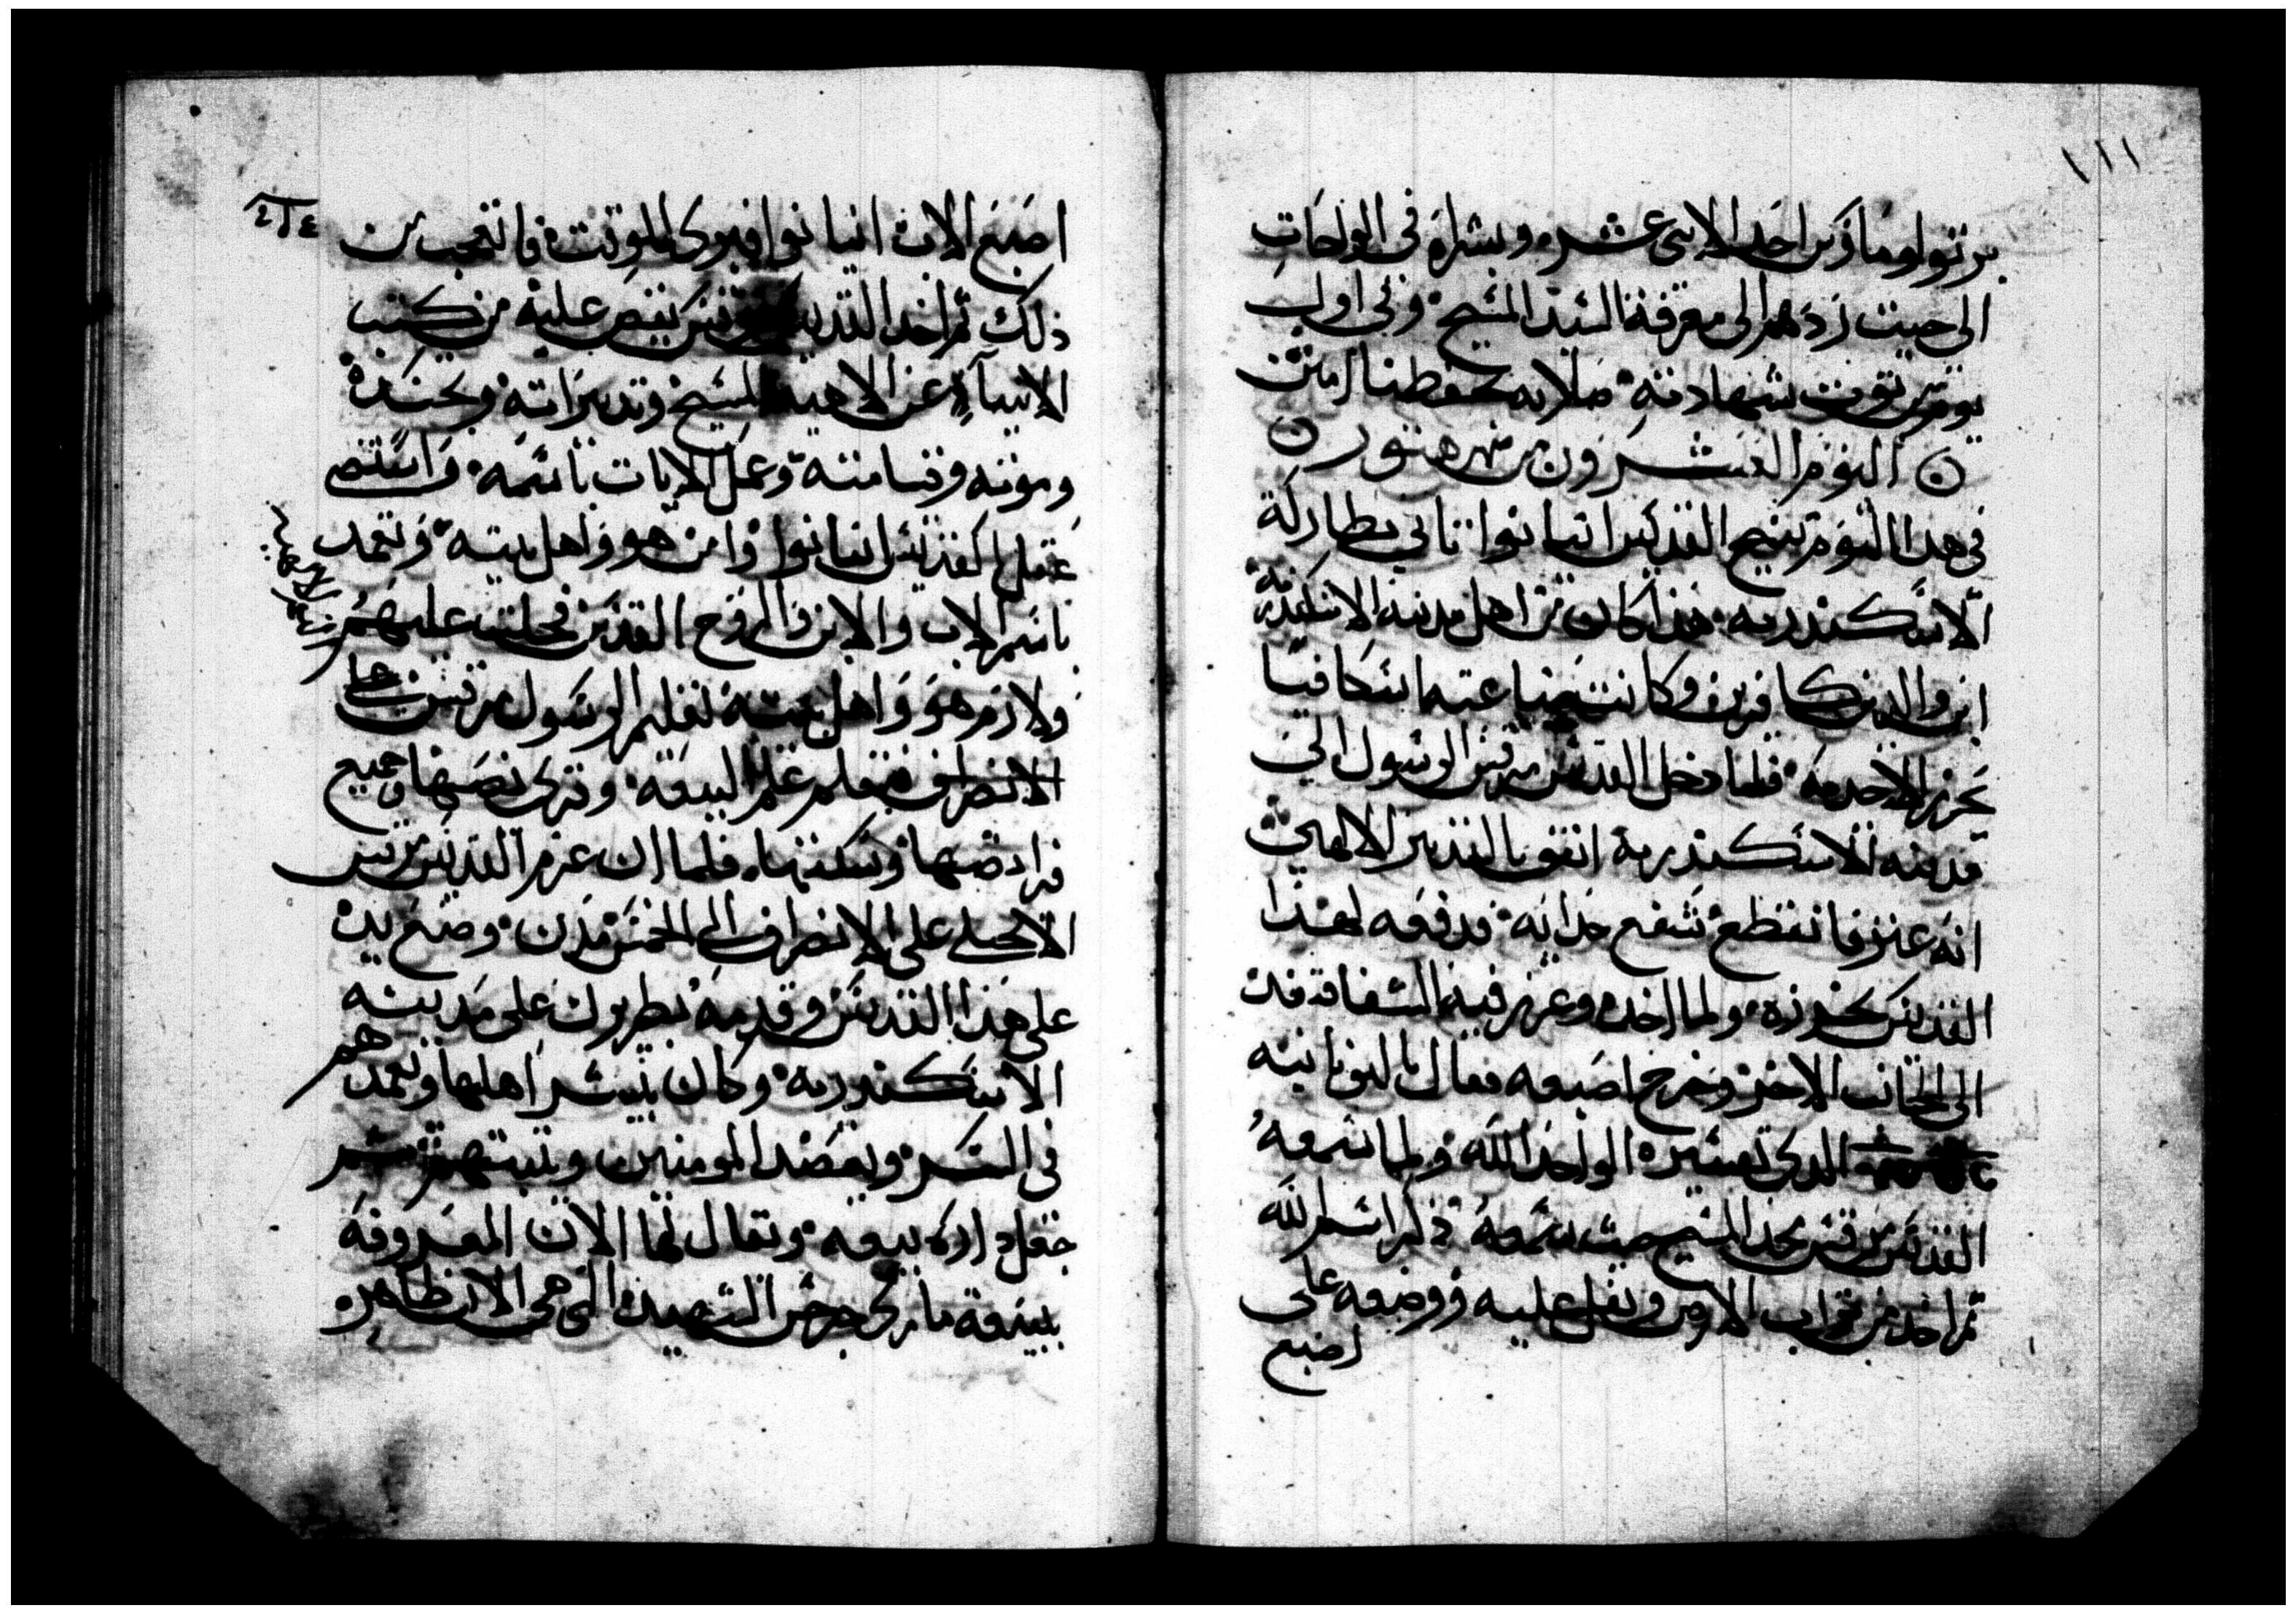 ١١١
برتولوماوس احد الاثنى عشر وبشراه فى الواحات
الى حيث ردهم الى معرفة السيد المسيح وفى اول
يوم توت شهادته صلاته تحفظنا امين
اليوم العشرون من شهر هتور
فى هذا اليوم تنيح القديس انيانوا ثانى بطاركة
الاسكندريه هذا كان من اهل مدينه الاسكندريه
ابن والدين كافرين وكانت صناعته اسكافيا
يخرز الاحديه فلما دخل القديس مرقس الرسول الى
مدينه الاسكندرية اتفق بالتدبير الالهى
انه عثر فانقطع شسع حدايه فدفعه لهذا
القديس يخرزه ولما اخده وغرز فيه الشفا فنفدت
الى الجانب الاخر وجرح اصبعه فقال باليونانيه
الدى تفسيره الواحد الله ولما سمعه
القديس مرقس مجد المسيح حيث سمعه ذكر اسم الله
ثم اخد من تراب الارض وتفل عليه ووضعه على
اصبع
اصبع الاب انيانوا فبرى للوقت فانتعجب من
ذلك ثم اخد القديس مرقس يقص عليه من كتب
الانبياء عن الاهية المسيح وتدبيراته وتجسده
وموته وقيامته وعمل الايات باسمه فاستضى
عقل القديس انيانوا وامن هو واهل بيته وتعمد
باسم الاب والابن والروح القدس فحلت عليهم
ولازم هو واهل بيته تعليم الرسول مرقس
الانصراف فتعلم علم البيعه وترى نصها وجميع
فرايضها وسننها فلما ان عزم القديس مرقس
الانجيلى على الانصراف الى الخمس مدن وضع يده
على هذا القديس وقدمه بطريرك على مدينه
الاسكندريه وكان يبشر اهلها وتعمدهم
فى السر ويعضد المومنين ويثبتهم
جعل داره بيعه ويقال لها الان المعروفة
ببيعة مارى جرجس الشهيد التى هى الان ظاهره